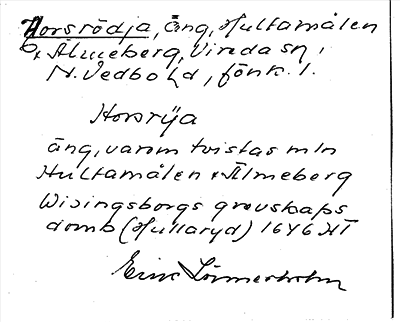 Horsrödja, äng, Hultamålen
o. Älmeberg, Vireda sn,
N. Vedbo hd, Jönk. l.
Horsrÿa
äng, varom tvistas mln
Hultamålen o Älmeberg
Wisingsborgs grevskaps
domb (Hullaryd) 1646 HT